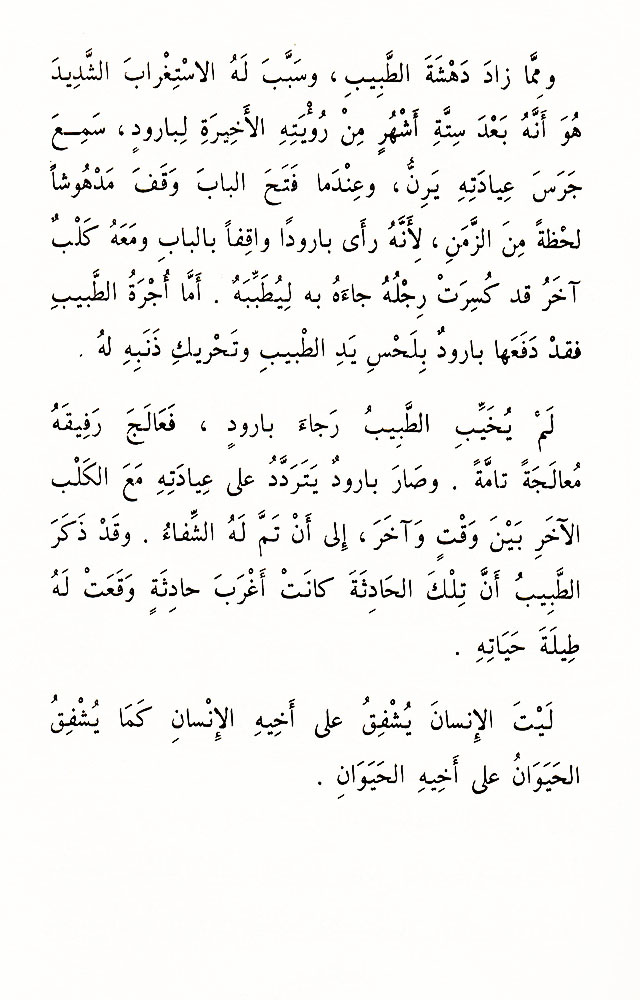 ومِمَّا زادَ دَهْشَةَ الطَّبِيبِ، وسَبَّبَ لَهُ الاسْتِغْرابَ الشَّدِيدَ
هُوَ أَنَّهُ بَعْدَ سِتَّةِ أَشْهُرٍ مِنْ رُؤْيَتِهِ الأَخِيرَةِ لِبارودٍ، سَمِعَ
جَرَسَ عِيادَتِهِ يَرِنُّ، وعِنْدَما فَتَحَ البابَ وَقَفَ مَدْهُوشاً
لحْظةً مِنَ الزَّمَنِ، لِأَنَّهُ رأَى بارودًا واقِفاً بالبابِ ومَعَهُ كَلْبٌ
آخَرُ قد كُسِرَتْ رِجْلُهُ جاءَهُ به لِيُطَبِّبَهُ . أَمَّا أُجْرَةُ الطَّبيبِ
فقدْ دَفَعَها بارودٌ بِلَحْسِ يَدِ الطْبيبِ وتَحْريكِ ذَنَبِهِ لهُ .
لَمْ يُخَيِّبِ الطَّبِيبُ رَجاءَ بارودٍ ، فَعَالَجَ رَفِيقَهُ
مُعالَجَةً تامَّةً . وصَارَ بارودٌ يَتَرَدَّدُ على عِيادَتِهِ مَعَ الكَلْبِ
الآخَرِ بَيْنَ وَقْتٍ وَآخَرَ، إِلى أَنْ تَمَّ لَهُ الشِّفاءُ . وقَدْ ذَكَرَ
الطَّبِيبُ أَنَّ تِلْكَ الحَادِثَةَ كانَتْ أَغْرَبَ حادِثَةٍ وَقَعَتْ لَهُ
طِيلَةَ حَيَاتِهِ .
لَيْتَ الإِنسانَ يُشْفِقُ على أَخِيهِ الإِنْسانِ كَمَا يُشْفِقُ
الحَيَوَانُ على أَخِيهِ الحَيَوَانِ .